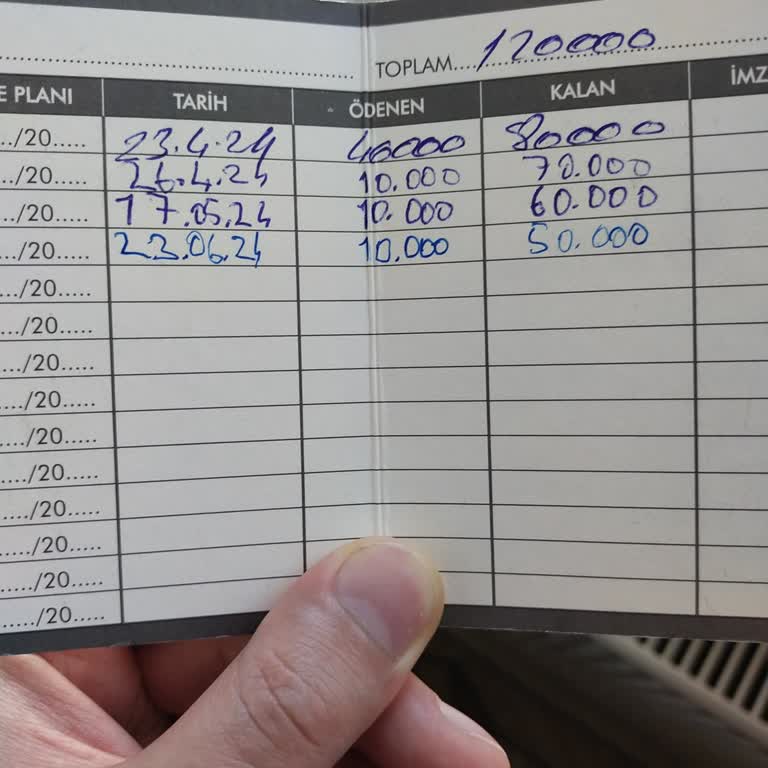 TOPLAM....120000
E PLANI TARİH ÖDENEN KALAN İMZ
../20..... 23.4.24 40000 80000
../20..... 26.4.24 10.000 70.000
../20..... 17.05.24 10.000 60.000
../20..... 23.06.24 10.000 50.000
../20.....
.../20.....
.../20.....
.../20.....
.../20.....
..../20.....
..../20.....
..../20.....
...../20.....
...../20.....